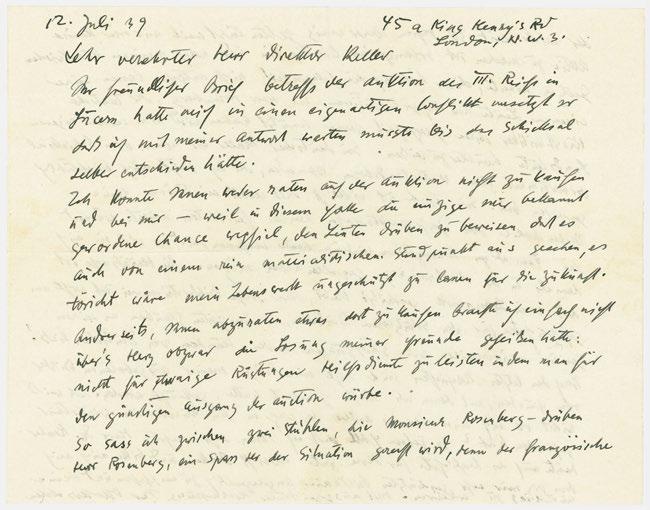 12. Juli 39
45 a King Henry's Rd
London, N.W. 3.
Sehr verehrter Herr Direktor Keller
Ihr freundlicher Brief betreffs der Auktion des III. Reichs in
Luzern hatte mich in einen eigenartigen Conflikt versetzt so
dass ich mit meiner Antwort warten musste bis das Schicksal
selber entschieden hätte.
Ich konnte Ihnen weder raten auf der Auktion nicht zu kaufen
und bei mir – weil in diesem Falle die einzige mir bekannt
gewordene Chance wegfiel, den Leuten drüben zu beweisen, dass es
auch von einem rein materialistischen Standpunkt aus gesehen, es
töricht wäre mein Lebenswerk ungeschützt zu lassen für die Zukunft.
Anderseits, Ihnen abzuraten etwas dort zu kaufen brachte ich einfach nicht
über's Herz obzwar die Losung meiner Freunde geheißen hatte:
nicht für etwaige Rüstungen Hilfsdienste zu leisten indem man für
den günstigen Ausgang der Auction würbe.
So sass ich zwischen zwei Stühlen, hie Monsieur Rosenberg – drüben
Herr Rosenberg, ein Spass der der Situation gerecht wird, denn der französische